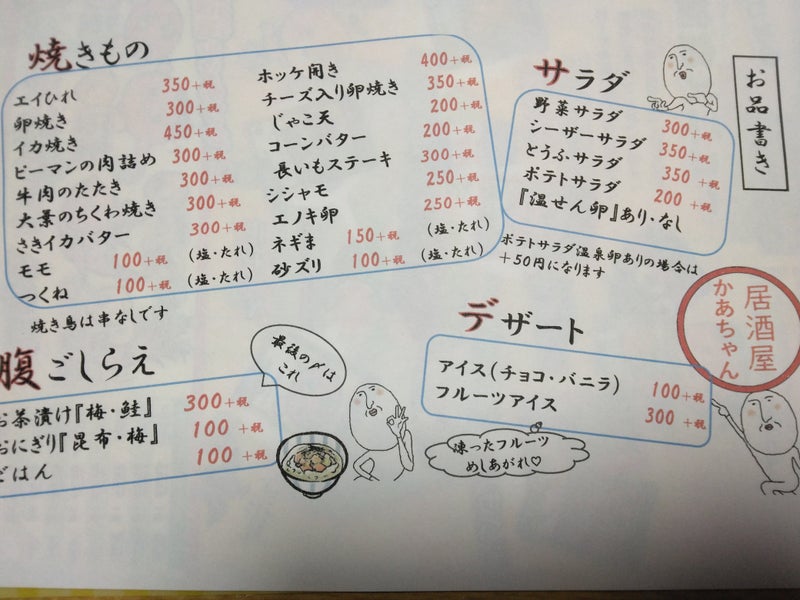 お品書き
焼きもの
エイひれ 350+税
卵焼き 300+税
イカ焼き 450+税
ピーマンの肉詰め 300+税
牛肉のたたき 300+税
大葉のちくわ焼き 300+税
さきイカバター 300+税
モモ 100+税 (塩・たれ)
つくね 100+税 (塩・たれ)
ホッケ開き 400+税
チーズ入り卵焼き 350+税
じゃこ天 200+税
コーンバター 200+税
長いもステーキ 300+税
シシャモ 250+税
エノキ卵 250+税
ネギま 150+税 (塩・たれ)
砂ズリ 100+税 (塩・たれ)
焼き鳥は串なしです
サラダ
野菜サラダ 300+税
シーザーサラダ 350+税
とうふサラダ 350+税
ポテトサラダ 200+税
『温せん卵』あり・なし
ポテトサラダ温泉卵ありの場合は
+50円になります
居酒屋
かあちゃん
腹ごしらえ
お茶漬け『梅・鮭』 300+税
おにぎり『昆布・梅』 100+税
ごはん 100+税
最後の〆は
これ
デザート
アイス(チョコ・バニラ) 100+税
フルーツアイス 300+税
凍ったフルーツ
めしあがれ♡